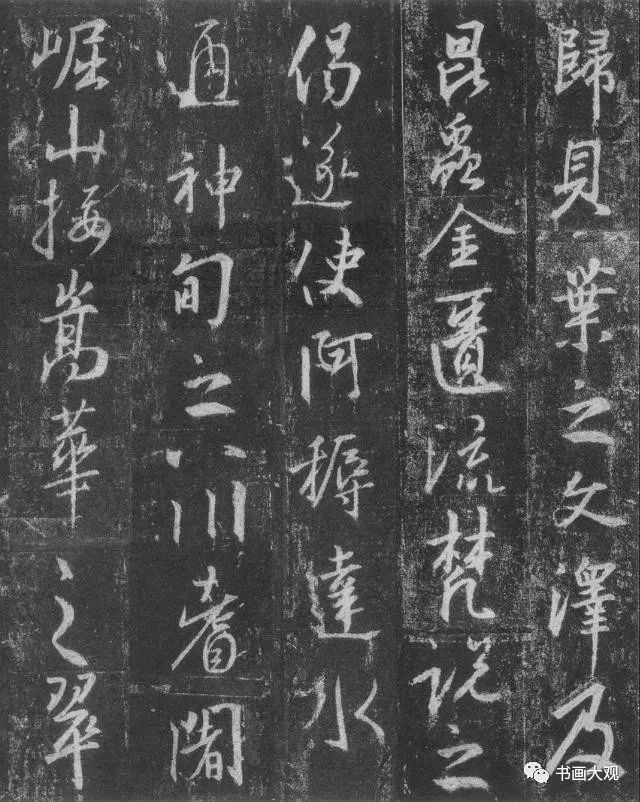 歸貝葉之文澤及
昆蟲金匱流梵説之
偈遂使阿耨達水
通神甸之八川耆闍
崛山接嵩華之翠
书画大观